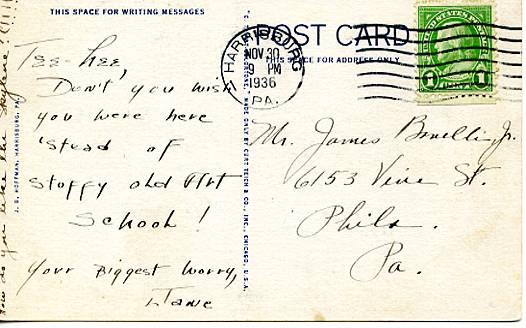 THIS SPACE FOR WRITING MESSAGES
Tee-hee
Don't you wish
you were here
'stead of
stoffy old Art
School!
Your Biggest Worry,
Jane
How do you like the skyline?
J. B. HOFFMAN, HARRISBURG, PA.
MADE ONLY BY CURT TEICH & CO., INC., CHICAGO, U.S.A.
POST CARD
THIS SPACE FOR ADDRESS ONLY
HARRISBURG
PA.
NOV 30
9 PM
1936
UNITED STATES POSTAGE
1 CENT 1
Mr. James Brelli, Jr.
6153 Vine St.
Phila.
Pa.